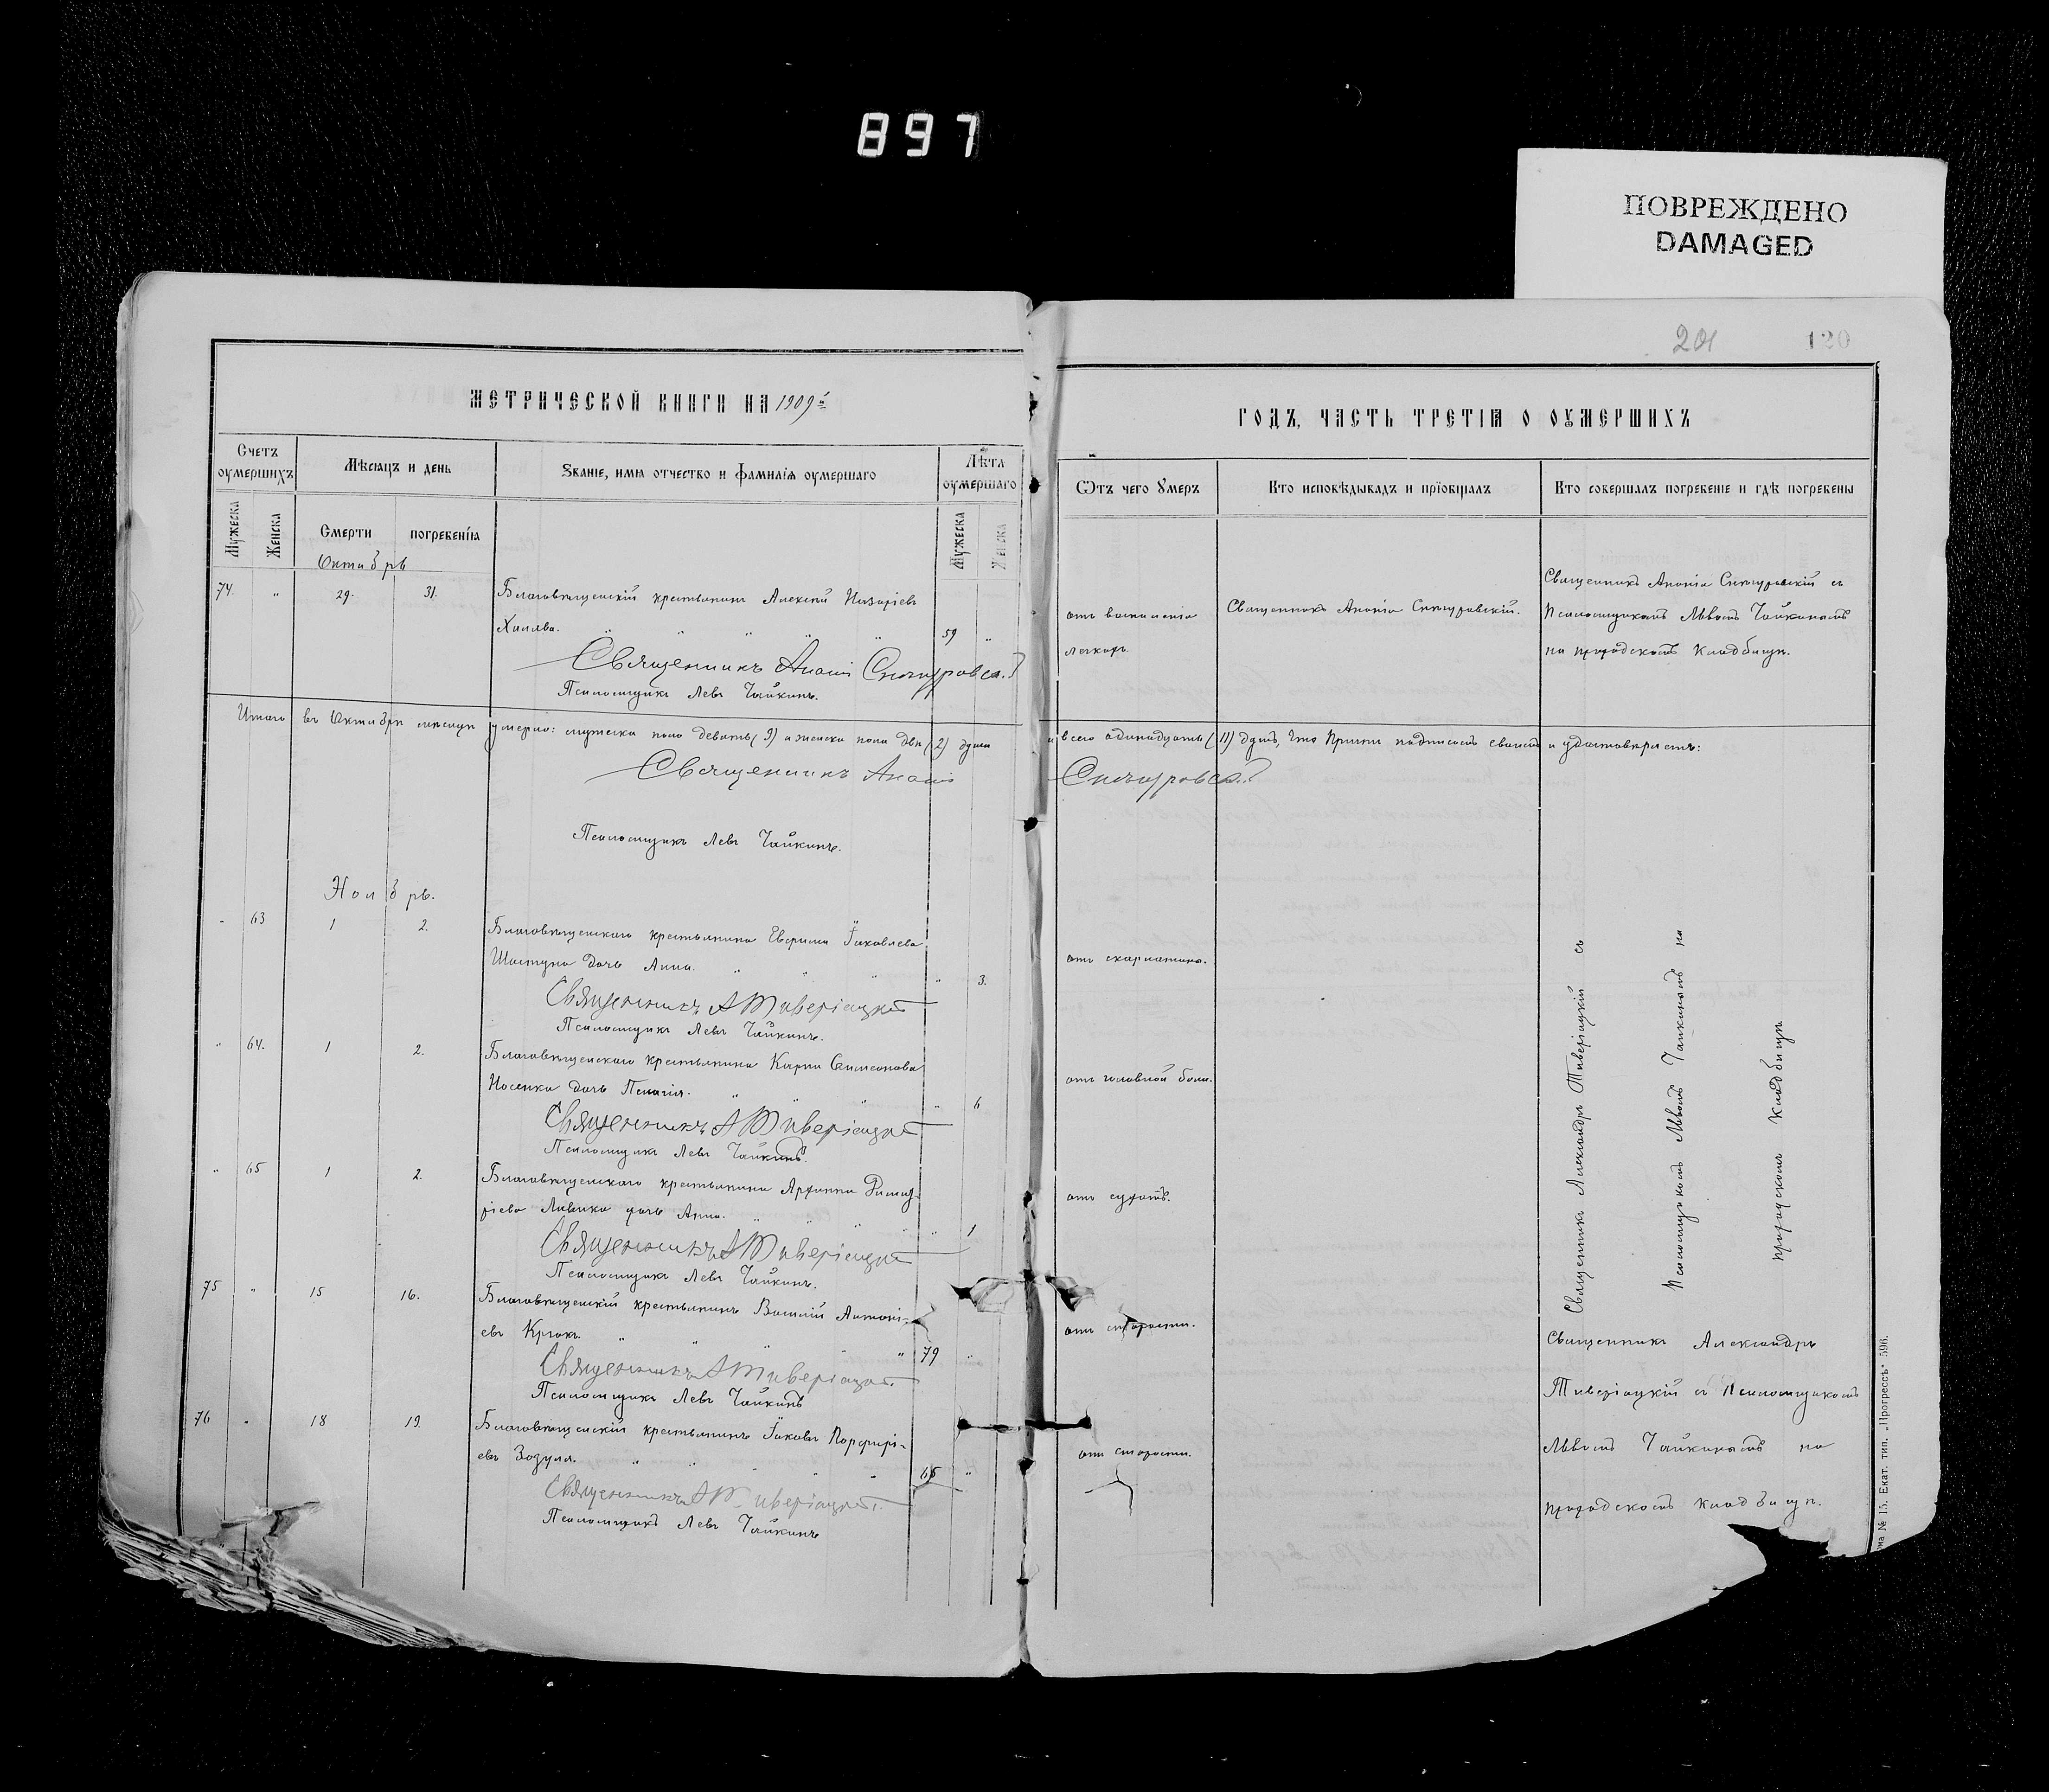 897
ПОВРЕЖДЕНО
DAMAGED
201 120
МЕТРИЧЕСКОЙ КНИГИ НА 1909й
ГОДЪ, ЧАСТЬ ТРЕТІЯ О ОУМЕРШИХЪ
Счетъ оумершихъ
Мѣсяцъ и день
Званіе, имя отчество и фамилія оумершаго
Лѣта оумершаго
Ѿтъ чего оумеръ
Кто исповѣдывалъ и пріобщалъ
Кто совершалъ погребеніе и гдѣ погребены
Мужеска
Женска
Смерти
погребенія
Мужеска
Женска
Октябрь
74. " 29. 31.
Благовѣщенскій крестьянинъ Алексѣй Назаріевъ
Халява. " " " " " 59 "
отъ воспаленія
легкихъ.
Священникъ Ананія Снѣгуровскій.
Священникъ Ананія Снѣгуровскій съ
Псаломщикомъ Львомъ Чайкинымъ
на приходскомъ кладбищѣ.
Священникъ Ананія
Псаломщикъ Левъ Чайкинъ.
Итого въ Октябрѣ мѣсяцѣ умерло: мужеска пола девять (9) а женска пола двѣ (2) души
а всего одинадцать (11) душъ, что причтъ подписомъ своимъ и удостовѣряетъ:
Священникъ Ананія
Псаломщикъ Левъ Чайкинъ.
Ноябрь.
" 63 1 2.
Благовѣщенскаго крестьянина Іаковлева
дочь Анна. " " " " 3.
отъ скарлатины.
Священникъ А Тиверіацкій
Псаломщикъ Левъ Чайкинъ.
" 64. 1 2.
Благовѣщенскаго крестьянина Карпа Симеонова
Носенка дочь Пелагія. " " " 6
отъ головной боли.
Священникъ А Тиверіацкій
Псаломщикъ Левъ Чайкинъ.
" 65 1 2.
Благовѣщенскаго крестьянина Димит-
ріева дочь Анна. " " " " 1
Священникъ А Тиверіацкій
Псаломщикъ Левъ Чайкинъ.
Священникъ Александръ Тиверіацкій съ
Псаломщикомъ Львомъ Чайкинымъ на
приходскомъ кладбищѣ
75 " 15 16.
Благовѣщенскій крестьянинъ Василій Антоні-
евъ " " " 79 "
отъ старости.
Священникъ А Тиверіацкій
Псаломщикъ Левъ Чайкинъ
76 " 18 19.
Благовѣщенскій крестьянинъ Іаковъ Порфирі-
евъ Зозуля. " " " " 66 "
отъ старости.
Священникъ А Тиверіацкій.
Псаломщикъ Левъ Чайкинъ
Священникъ Александръ
Тиверіацкій съ Псаломщикомъ
Львомъ Чайкинымъ на
приходскомъ кладбищѣ.
№ 15. Екат. тип. „Прогрессъ" 596.